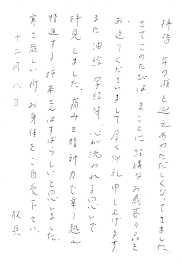 拝啓 年の瀬を迎えあわただしくなってきました
さてこのたびは まことに結構なお歳暮の品を
お送りくださいまして厚く御礼申し上げます
また 油絵 字経等 心が洗われる思いで
拝見しました。痛みを精神力で乗り越え
精進する 柿本さんはすばらしいと思いました。
寒さ厳しい折 お身体をご自愛下さい。
敬具
十二月八日